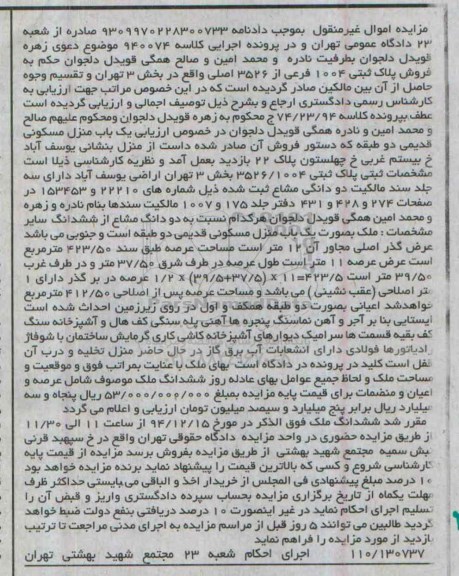 مزایده اموال غیرمنقول بموجب دادنامه ۹۳۰۹۹۷۰۲۲۸۳۰۰۷۳۳ صادره از شعبه
۲۳ دادگاه عمومی تهران و در پرونده اجرایی کلاسه ۹۴۰۰۷۴ موضوع دعوی زهره
قویدل دلجوان بطرفیت نادره و محمد امین و صالح همگی قویدل دلجوان حکم به
فروش پلاک ثبتی ۱۰۰۴ فرعی از ۳۵۲۶ اصلی واقع در بخش ۳ تهران و تقسیم وجوه
حاصل از آن بین مالکین صادر گردیده است که در این خصوص مراتب جهت ارزیابی به
کارشناس رسمی دادگستری ارجاع و بشرح ذیل توصیف اجمالی و ارزیابی گردیده است
عطف بپرونده کلاسه ۷۴/۲۳/۹۴ ج محکوم به زهره قویدل دلجوان ومحکوم علیهم صالح
و محمد امین و نادره همگی قویدل دلجوان در خصوص ارزیابی یک باب منزل مسکونی
قدیمی دو طبقه که دستور فروش آن صادر شده داست از منزل بنشانی یوسف آباد
خ بیستم غربی خ چهلستون پلاک ۲۲ بازدید بعمل آمد و نظریه کارشناسی ذیلا است
مشخصات ثبتی پلاک ثبتی ۳۵۲۶/۱۰۰۴ بخش ۳ تهران اراضی یوسف آباد دارای سه
جلد سند مالکیت دو دانگی مشاع ثبت شده ذیل شماره های ۲۲۲۱۰ و ۱۵۳۴۵۳ در
صفحات ۲۷۴ و ۴۲۸ و ۴۳۱ دفتر جلد ۱۷۵ و ۱۰۰۷ مالکیت سندها بنام نادره و زهره
و محمد امین همگی قویدل دلجوان هرکدام نسبت به دو دانگ مشاع از ششدانگ سایر
مشخصات : ملک بصورت یک باب منزل مسکونی قدیمی دو طبقه است و جنوبی می باشد
عرض گذر اصلی مجاور آن ۱۲ متر است مساحت عرصه طبق سند ۴۲۳/۵۰ مترمربع
است عرض عرصه ۱۱ متر است طول عرصه در طرف شرق ۳۷/۵۰ متر و در طرف غرب
۳۹/۵۰ متر است ۴۲۳/۵=۱۱ x (۳۹/۵+۳۷/۵) x ۱/۲ عرصه در بر گذر دارای ۱
متر اصلاحی (عقب نشینی ) می باشد و مساحت عرصه پس از اصلاحی ۴۱۲/۵۰ مترمربع
خواهدشد اعیانی بصورت دو طبقه همکف و اول در روی زیرزمین احداث شده است
ایستایی بنا بر آجر و آهن نماسنگ پنجره ها آهنی پله سنگی کف هال و آشپزخانه سنگ
کف بقیه قسمت ها سرامیک دیوارهای آشپزخانه کاشی کاری گرمایش ساختمان با شوفاژ
رادیاتورها فولادی دارای انشعابات آب برق گاز در حال حاضر منزل تخلیه و درب آن
قفل است کلید در پرونده در دادگاه است بهای ملک با عنایت بمراتب فوق و موقعیت و
مساحت ملک و لحاظ جمیع عوامل بهای عادله روز ششدانگ ملک موصوف شامل عرصه و
اعیان و منضمات برای قیمت پایه مزایده بمبلغ ۵۳/۰۰۰/۰۰۰/۰۰۰ ریال پنجاه و سه
میلیارد ریال برابر پنج میلیارد و سیصد میلیون تومان ارزیابی و اعلام می گردد
مقرر شد ششدانگ ملک فوق الذکر در مورخ ۹۴/۱۲/۱۵ از ساعت ۱۱ الی ۱۱/۳۰
از طریق مزایده حضوری در واحد مزایده دادگاه حقوقی تهران واقع در خ سپهبد قرنی
نبش سمیه مجتمع شهید بهشتی از طریق مزایده بفروش برسد مزایده از قیمت پایه
کارشناسی شروع و کسی که بالاترین قیمت را پیشنهاد نماید برنده مزایده خواهد بود
۱۰ درصد مبلغ پیشنهادی فی المجلس از خریدار اخذ و الباقی می بایستی حداکثر ظرف
مهلت یکماه از تاریخ برگزاری مزایده بحساب سپرده دادگستری واریز و قبض آن را
تسلیم اجرای احکام نماید در غیر اینصورت ۱۰ درصد دریافتی بنفع دولت ضبط خواهد
گردید طالبین می توانند ۵ روز قبل از مراسم مزایده به اجرای مدنی مراجعت تا ترتیب
بازدید از مورد مزایده را فراهم نماید
۱۱۰/۱۳۰۷۳۷ اجرای احکام شعبه ۲۳ مجتمع شهید بهشتی تهران